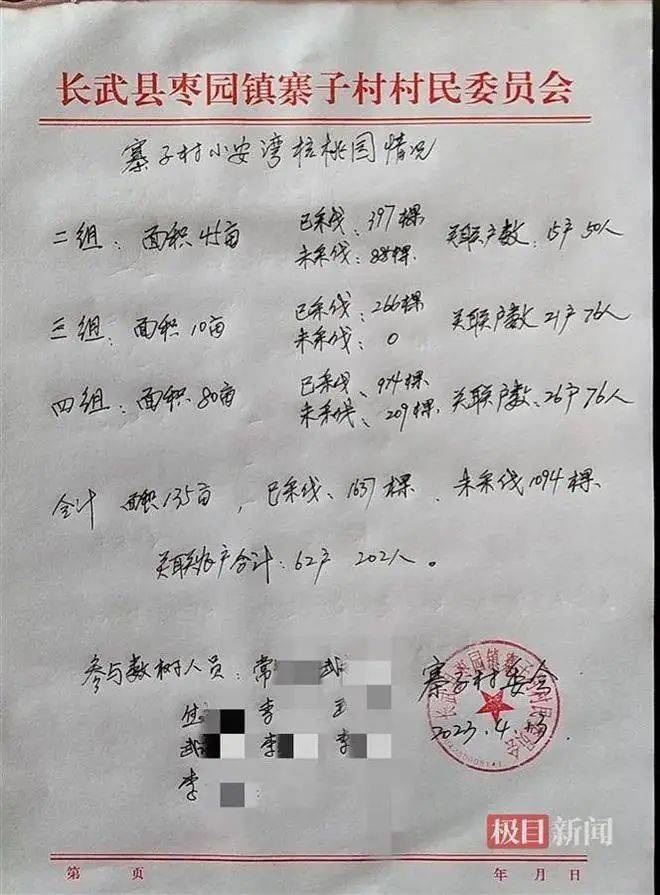 长武县枣园镇寨子村村民委员会
寨子村小安湾核桃园情况
二组：面积45亩 已采伐：397棵 关联户数：15户50人
未采伐：885棵
三组：面积10亩 已采伐：266棵 关联户数21户76人
未采伐：0
四组：面积80亩 已采伐：974棵 关联户数：26户76人
未采伐：209棵
合计 面积135亩，已采伐：1637棵．未采伐1094棵．
关联农户合计：62户 202人。
参与数树人员：常 武
李 王
武 李 李
李
寨子村委会
2023.4.
极目新闻
第 页 年 月 日